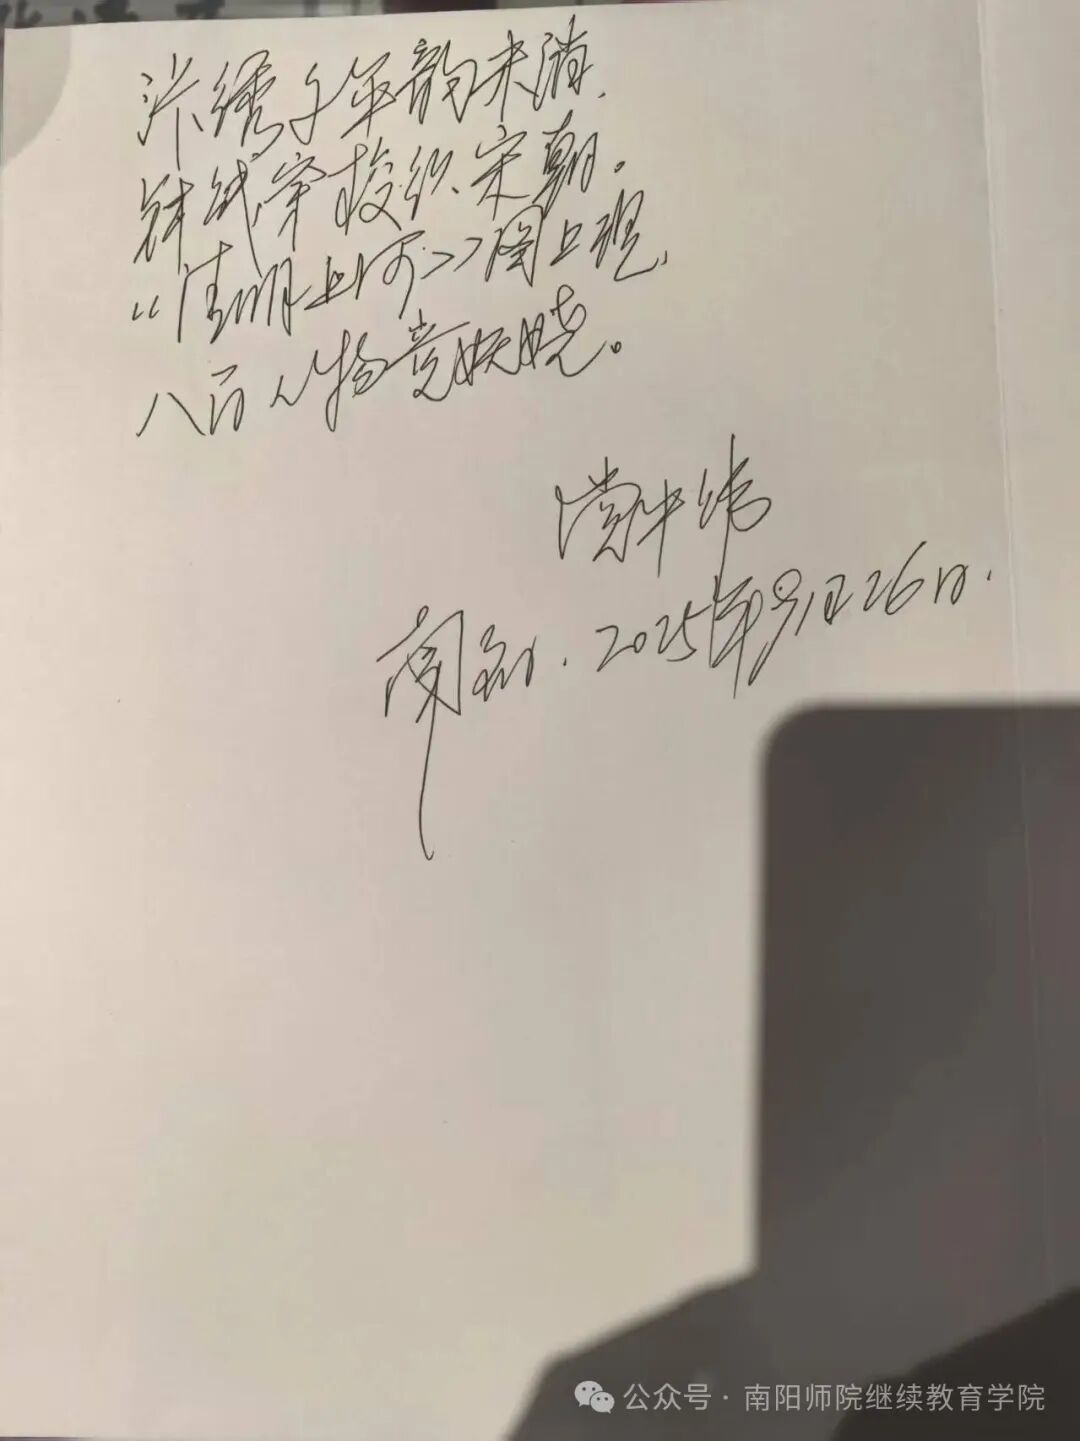 汴绣千年韵未消,
针线穿梭织宋朝。
“清明上河》》图上现,
八百人物竞妖娆。
党中纬
南武. 2025年9月26日.
公众号·南阳师院继续教育学院